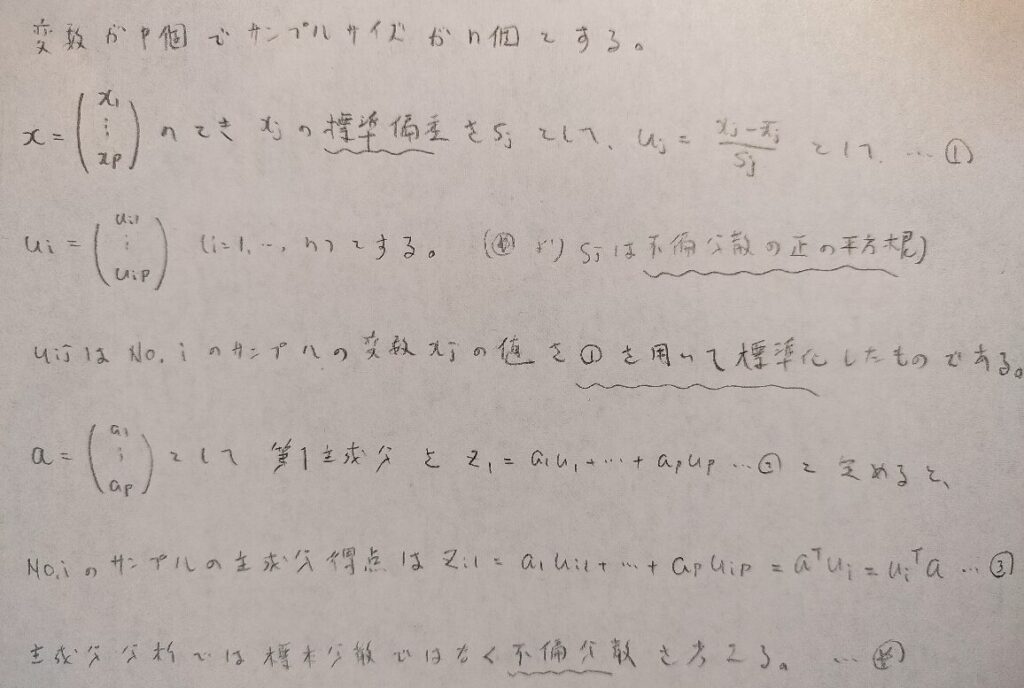 変数がp個でサンプルサイズがn個とする。
x = (x1 ⋮ xp) のとき xjの標準偏差をsjとして、uj = (xj − x̄j)/sj として、… ①
ui = (ui1 ⋮ uip) (i=1, …, n)とする。 (※より sjは不偏分散の正の平方根)
uijは No. i のサンプルの変数xjの値を①を用いて標準化したものである。
a = (a1 ⋮ ap) として 第1主成分を z1 = a1u1 + … + apup … ② と定めると、
No.i のサンプルの主成分得点は zi1 = a1ui1 + … + apuip = aᵀui = uiᵀa … ③
主成分分析では標本分散ではなく不偏分散を考える。 … ※